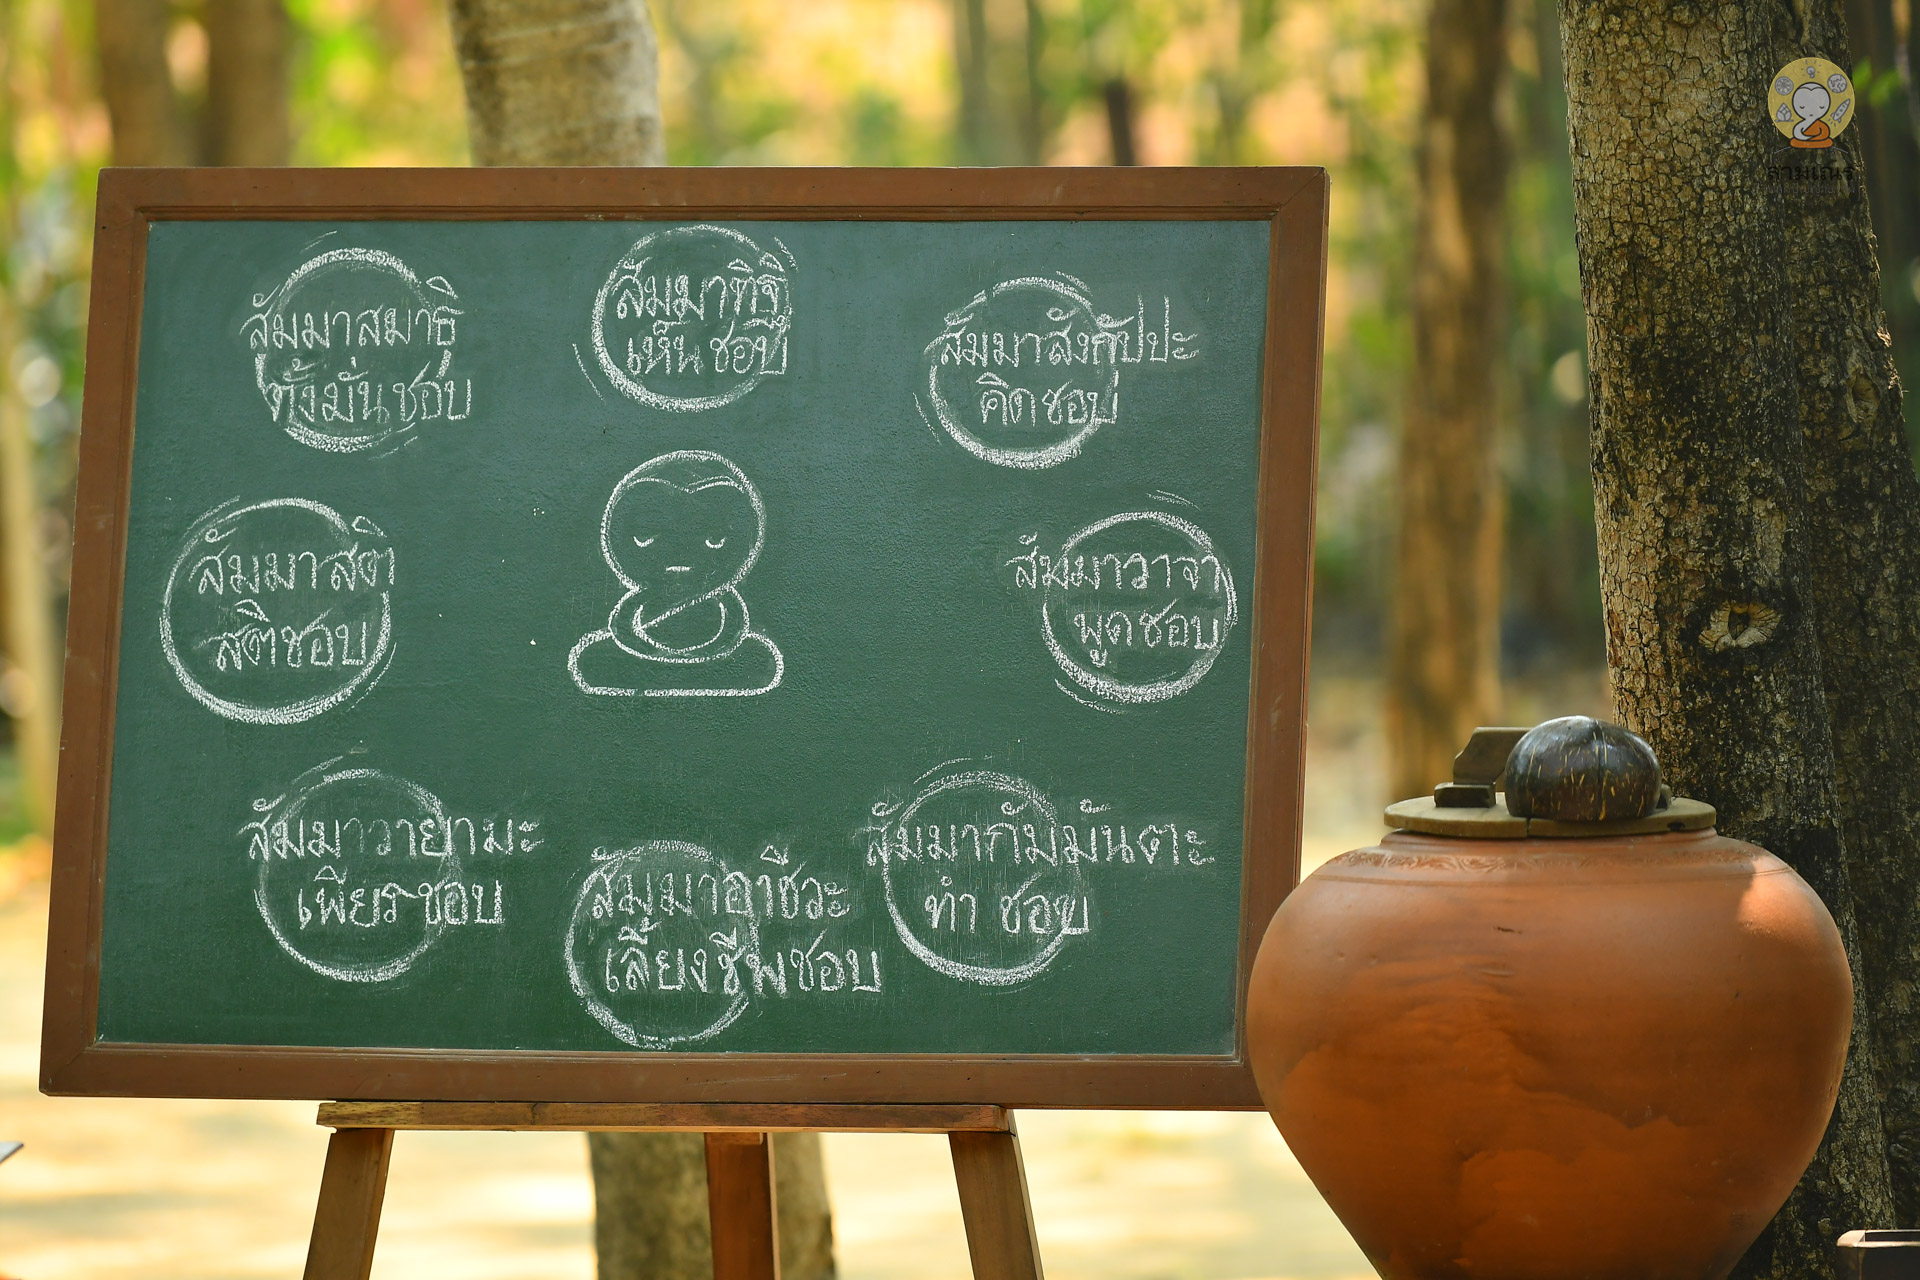 สัมมาสมาธิ
ตั้งมั่นชอบ
สัมมาทิฐิ
เห็นชอบ
สัมมาสังกัปปะ
คิดชอบ
สัมมาสติ
สติชอบ
สัมมาวาจา
พูดชอบ
สัมมาวายามะ
เพียรชอบ
สัมมาอาชีวะ
เลี้ยงชีพชอบ
สัมมากัมมันตะ
ทำ ชอบ
สามเณร